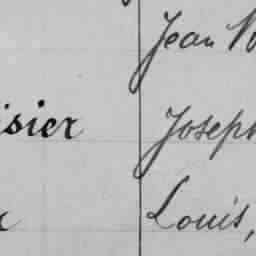 Jean
isier Joseph
Louis,